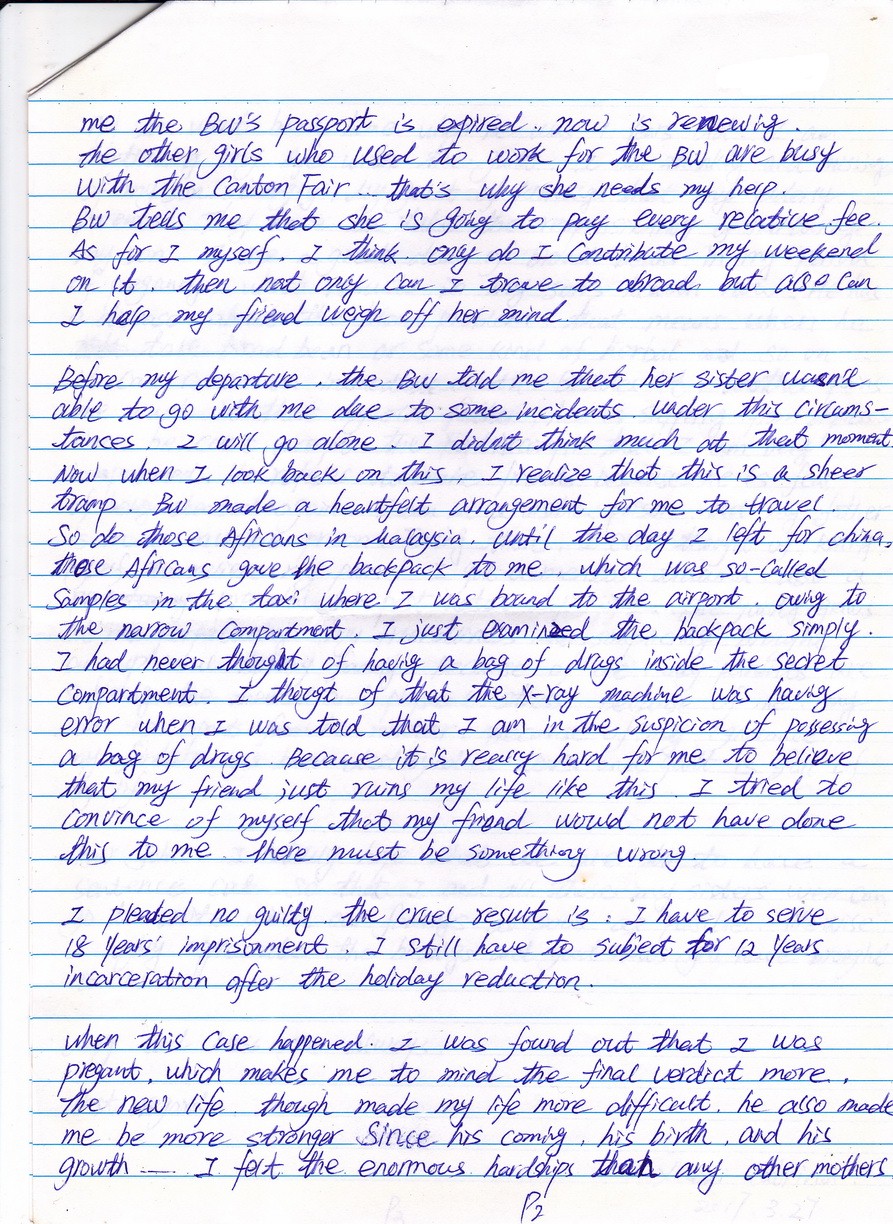 me the BW's passport is expired.. now is renewing.
the other girls who used to work for the BW are busy
with the Canton Fair.. that's why she needs my help.
BW tells me that she is going to pay every relative fee.
As for I myself. I think. only do I Contribute my weekend
on it. then not only can I trave to abroad, but also can
I help my friend weigh off her mind.
Before my departure. the BW told me that her sister wasn't
able to go with me due to some incidents. under this circums-
tances. I will go alone. I didn't think much at that moment.
Now when I look back on this, I realize that this is a sheer
tramp. BW made a heartfelt arrangement for me to travel.
So do those Africans in Malaysia. until the day I left for china,
these Africans gave the backpack to me. which was so-called
Samples in the taxi where I was bound to the airport. owing to
the narrow compartment. I just examined the backpack simply.
I had never thought of having a bag of drugs inside the secret
Compartment. I thougt of that the X-ray machine was having
error when I was told that I am in the suspicion of possessing
a bag of drugs. Because it is really hard for me to believe
that my friend just ruins my life like this. I tried to
Convince of myself that my friend would not have done
this to me. there must be something wrong.
I pleaded no guilty. the cruel result is: I have to serve
18 Years' imprisonment. I still have to subject for 12 Years
incarceration after the holiday reduction.
when this Case happened. I was found out that I was
pregant, which makes me to mind the final verdict more.
The new life. though made my life more difficult. he also made
me be more stronger Since his coming, his birth, and his
growth — I felt the enormous hardships than any other mothers.
P2